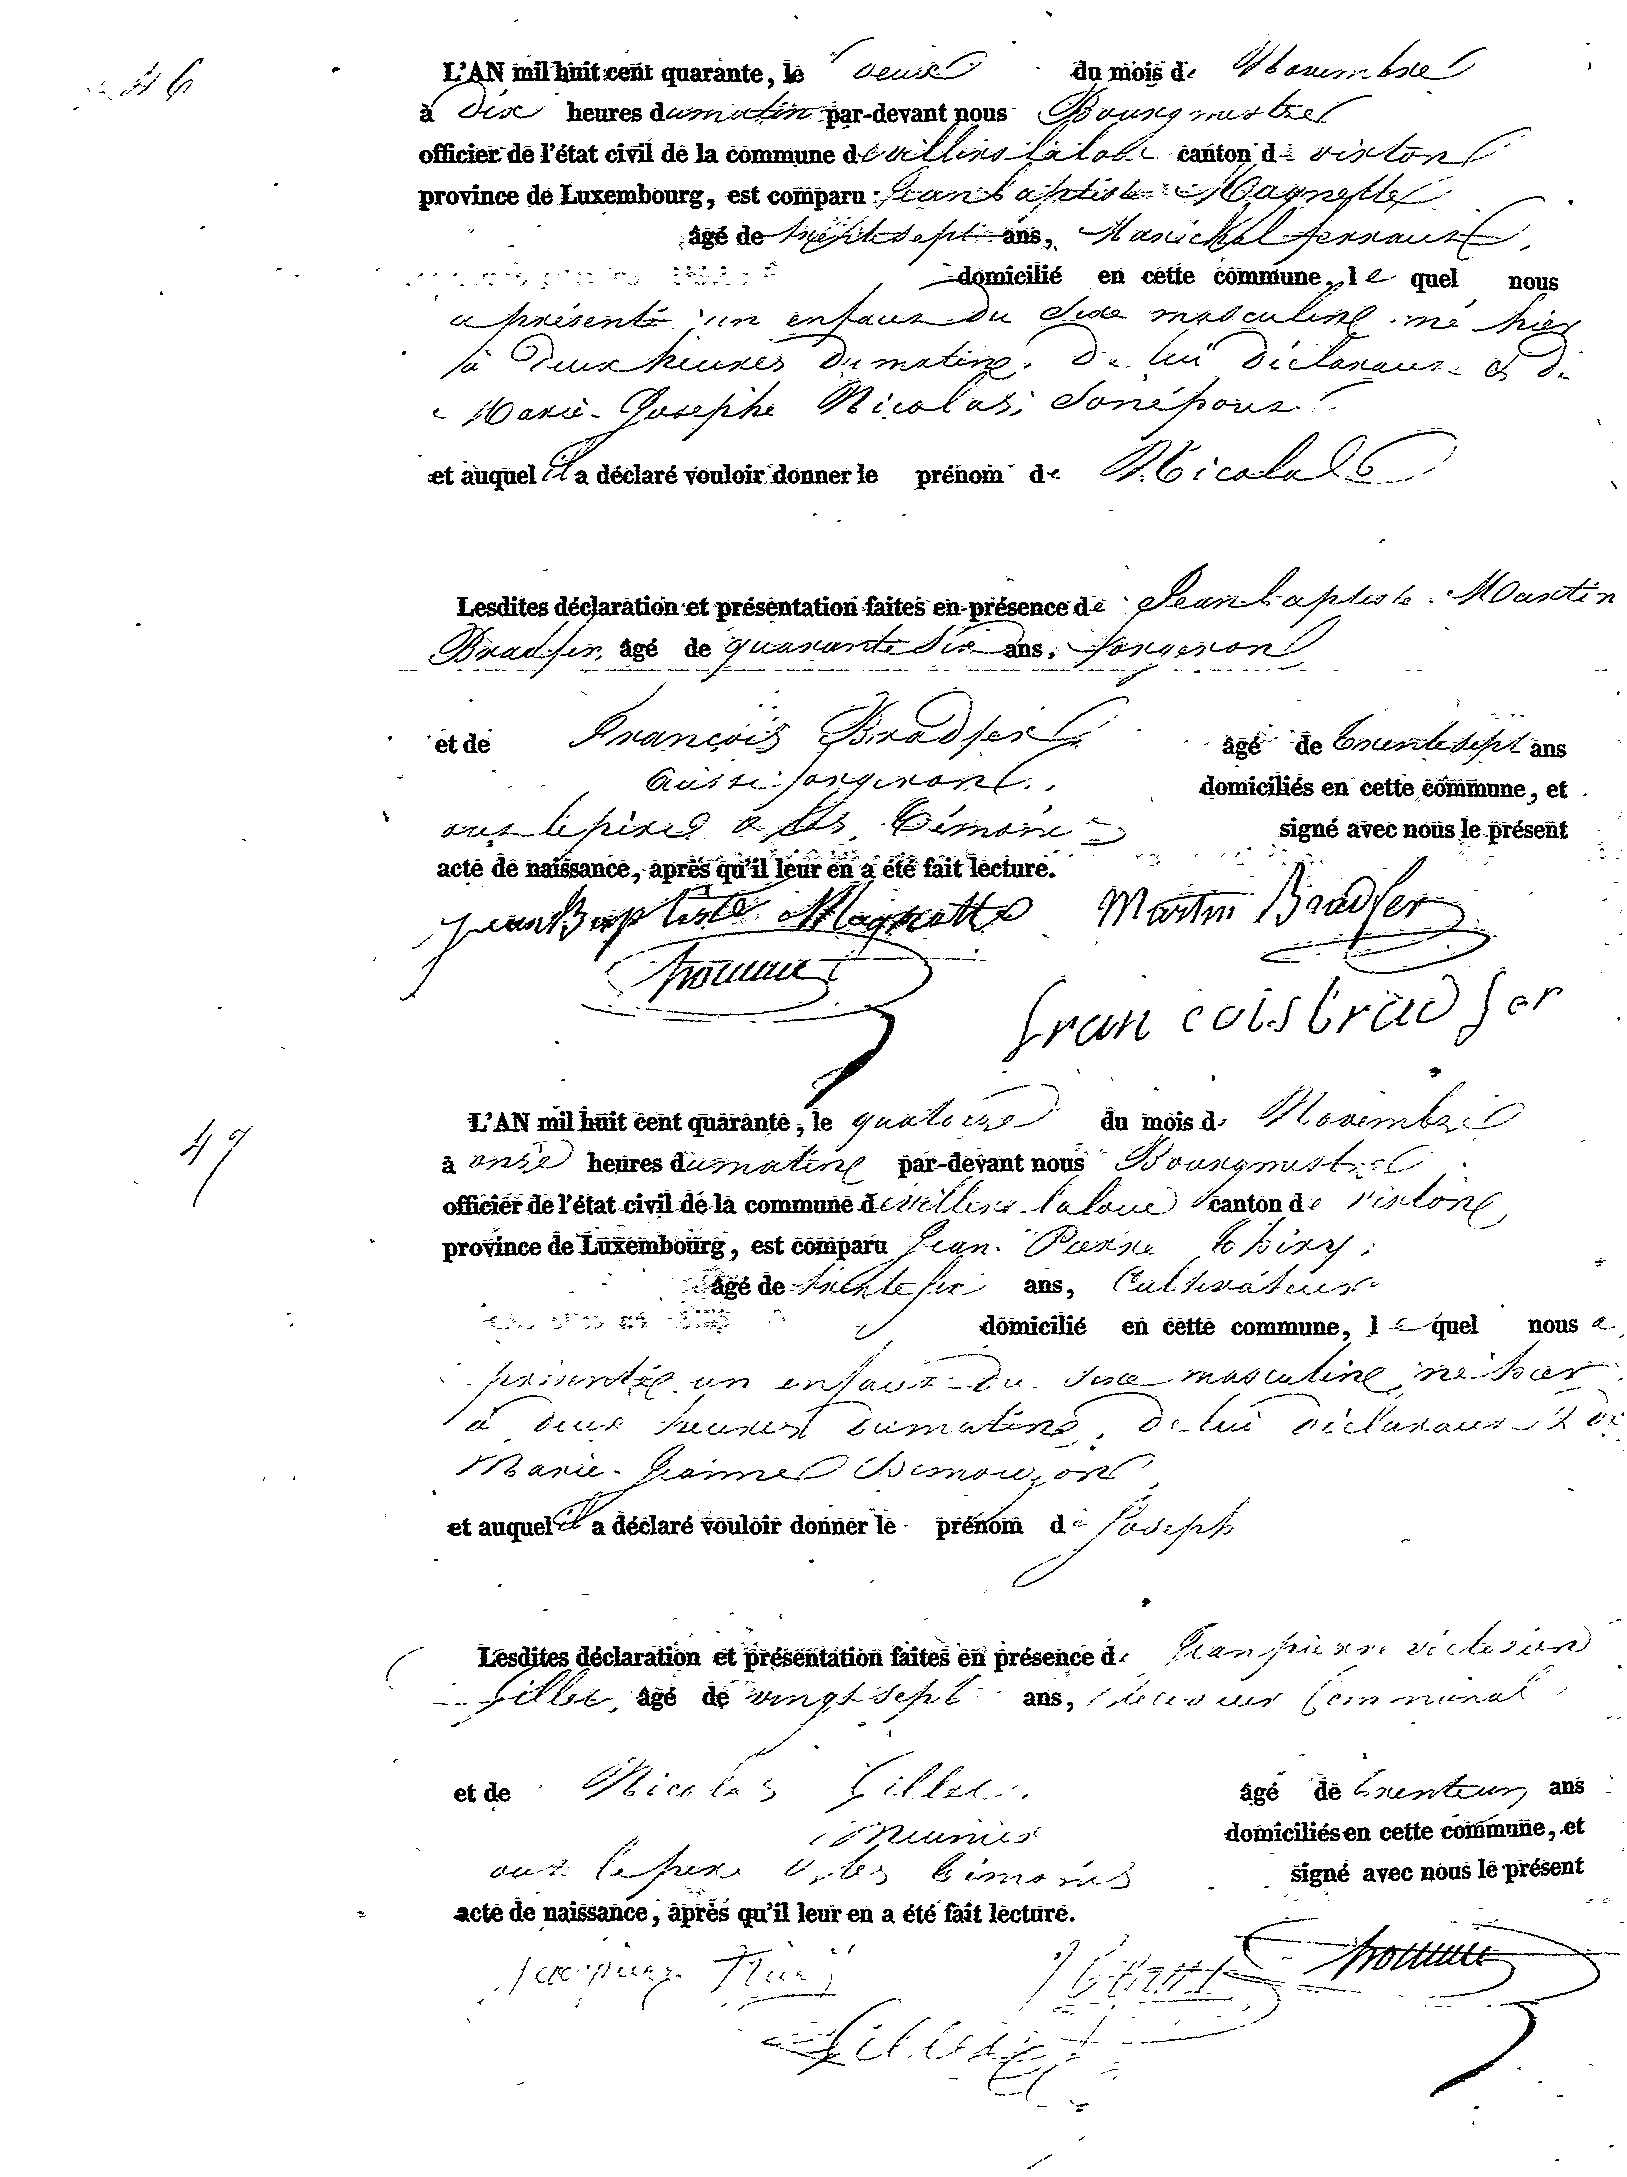 46
L'AN mil huit cent quarante, le deux du mois de Novembre
à dix heures du matin par-devant nous Bourgmestre
officier de l'état civil de la commune de villers la loue canton de virton
province de Luxembourg, est comparu Jean baptiste Magnette
âgé de trente sept ans, Maréchal ferrant
domicilié en cette commune, le quel nous
a présenté un enfant du sexe masculin né hier
à deux heures du matin de lui déclarant et de
Marie-Josephe Nicolas, son épouse
et auquel il a déclaré vouloir donner le prénom de Nicolas
Lesdites déclaration et présentation faites en présence de Jean baptiste Martin
Bradfer, âgé de quarante six ans, forgeron
et de François Bradfer âgé de trente sept ans
aussi forgeron domiciliés en cette commune, et
ont le père et les témoins signé avec nous le présent
acte de naissance, après qu'il leur en a été fait lecture.
Jean Baptiste Magnette Martin Bradfer
francois bradfer
47
L'AN mil huit cent quarante, le quatorze du mois de Novembre
à onze heures du matin par-devant nous Bourgmestre
officier de l'état civil de la commune de villers la loue canton de virton
province de Luxembourg, est comparu Jean Pierre thiry
âgé de trente six ans, Cultivateur
domicilié en cette commune, le quel nous a
présenté un enfant du sexe masculin, né hier
à deux heures du matin, de lui déclarant et de
Marie-Jeanne
et auquel il a déclaré vouloir donner le prénom de Joseph
Lesdites déclaration et présentation faites en présence de Jean pierre victorien
Gillet, âgé de vingt sept ans, receveur Communal
et de Nicolas Gillet âgé de trente un ans
Meunier domiciliés en cette commune, et
ont le père et les témoins signé avec nous le présent
acte de naissance, après qu'il leur en a été fait lecture.
Gillet